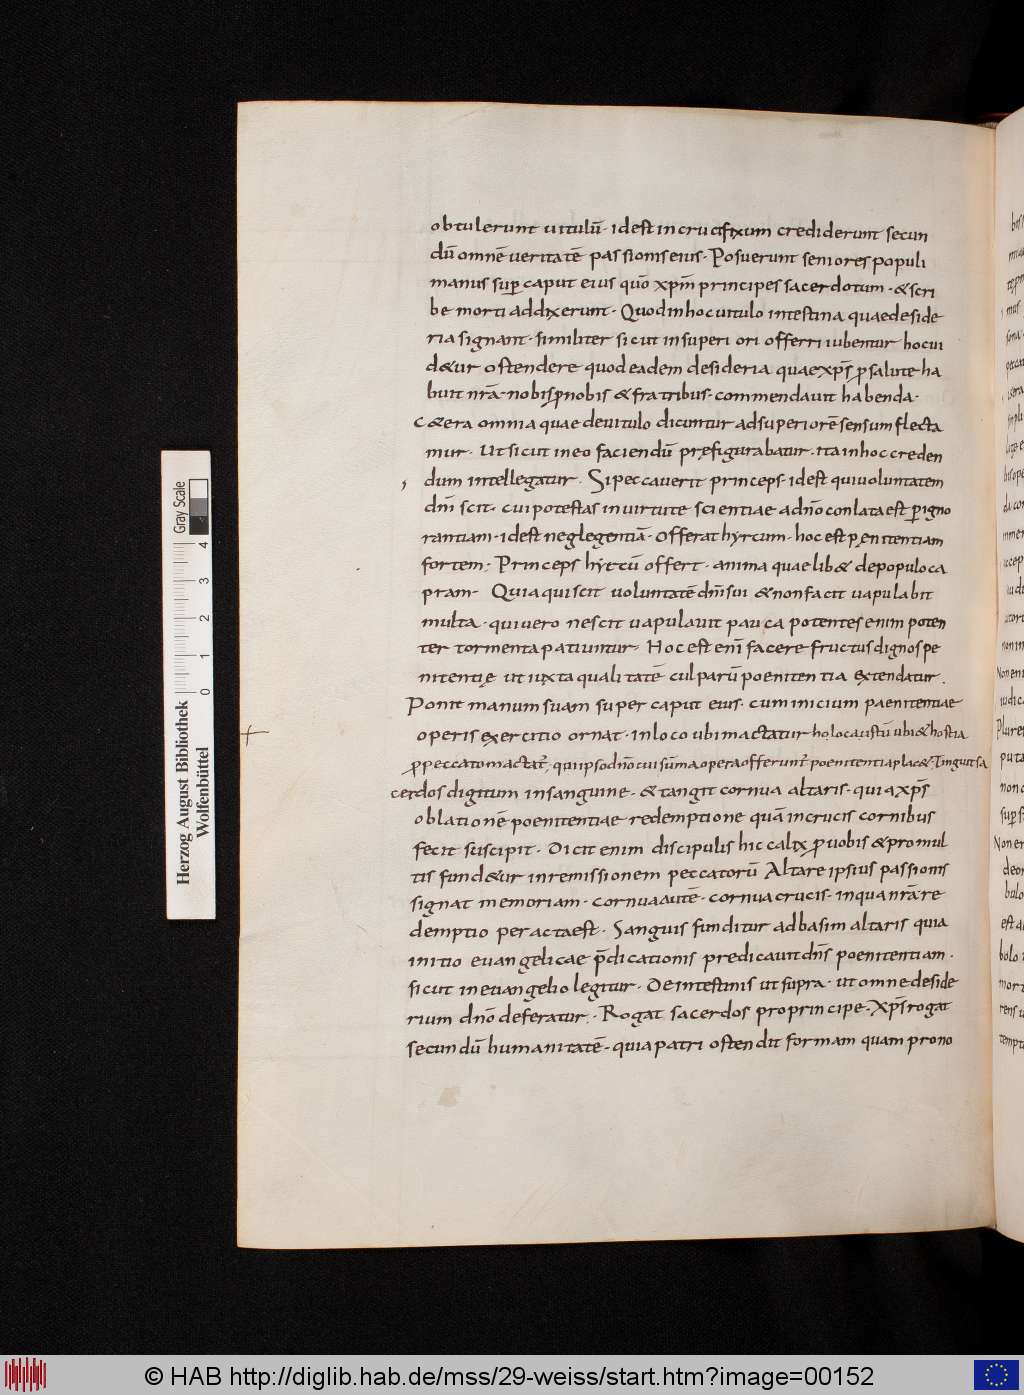 obtulerunt uitulū· idest incrucifixum crediderunt secun
dū omnē ueritatē passionis eius· Posuerunt seniores populi
manus suꝑ caput eius quō xp̄m principes sacerdotum · & scri
be morti addixerunt· Quod in hoc uitulo intestina quae deside
ria signant· similiter sicut in superiori offerri iubentur hoc ui
d&ur ostendere quod eadem desideria quae xp̄s ꝓ salute ha
buit nr̄a· nobis ꝓ nobis & fratribus· commendauit habenda·
C&era omnia quae de uitulo dicuntur ad superiorē sensum flecta
mur· Ut sicut in eo faciendū pręfigurabatur· ita in hoc creden
dum intellegatur· Si peccauerit princeps· idest qui uoluntatem
dn̄i scit· cui potestas in uirtute scientiae a dn̄o conlata est ꝑ igno
rantiam· idest neglegentiā· Offerat hyrcum· hoc est pęnitentiam
fortem; Princeps hyrcū offert· anima quae lib& de populo ca
pram· Quia qui scit uoluntatē dn̄i sui & non facit uapulabit
multa· qui uero nescit uapulauit pauca potentes enim poten
ter tormenta patiuntur· Hoc est enī facere fructus dignos pe
nitentię ut iuxta qualitatē culparū poenitentia extendatur.
Ponit manum suam super caput eius· cum inicium paenitentiae
operis exercitio ornat· in loco ubi mactatur holocaustū ubi & hostia
ꝓ peccato mactat̄· qui ipso dn̄o cui sūma opera offerunt̄ poenitentia plac&· Tinguit sa
cerdos digitum in sanguine· & tangit cornua altaris· quia xp̄s
oblationē poenitentiae redemptione quā in crucis cornibus
fecit suscipit· Dicit enim discipulis hic calix ꝓ uobis & pro mul
tis fund&ur in remissionem peccatorū Altare ipsius passionis
signat memoriam· cornua autē· cornua crucis· in qua nr̄a re
demptio peracta est· Sanguis funditur ad basim altaris quia
initio euangelicae p̄dicationis predicauit dn̄s poenitentiam·
sicut in euangelio legitur· De intestinis ut supra· ut omne deside
rium dn̄o deferatur· Rogat sacerdos pro principe· Xp̄s rogat
secundū humanitatē· quia patri ostendit formam quam pro no
Gray Scale
4
3
2
1
0
Herzog August Bibliothek
Wolfenbüttel
© HAB http://diglib.hab.de/mss/29-weiss/start.htm?image=00152